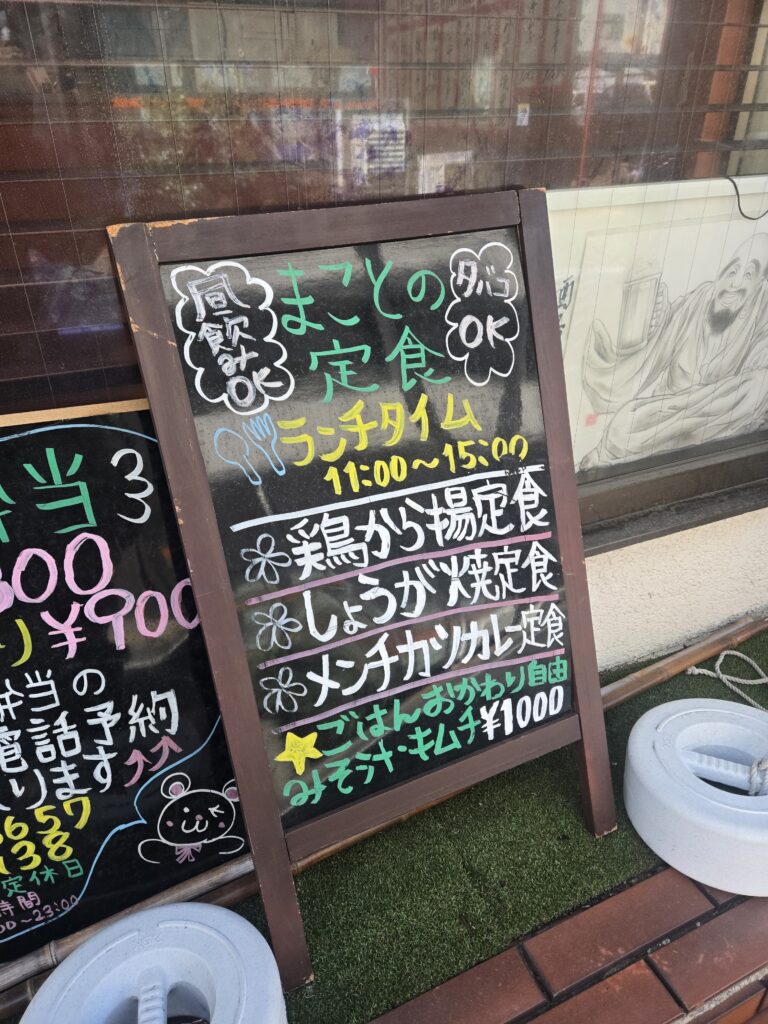 昼飲みOK
まことの
定食
タバコ
OK
ランチタイム
11:00～15:00
鶏から揚定食
しょうが焼定食
メンチカツカレー定食
ごはんおかわり自由
みそ汁・キムチ ¥1000
弁当
¥900
弁当の
電話予約
ります
3657
138
定休日
時間
00～23:00